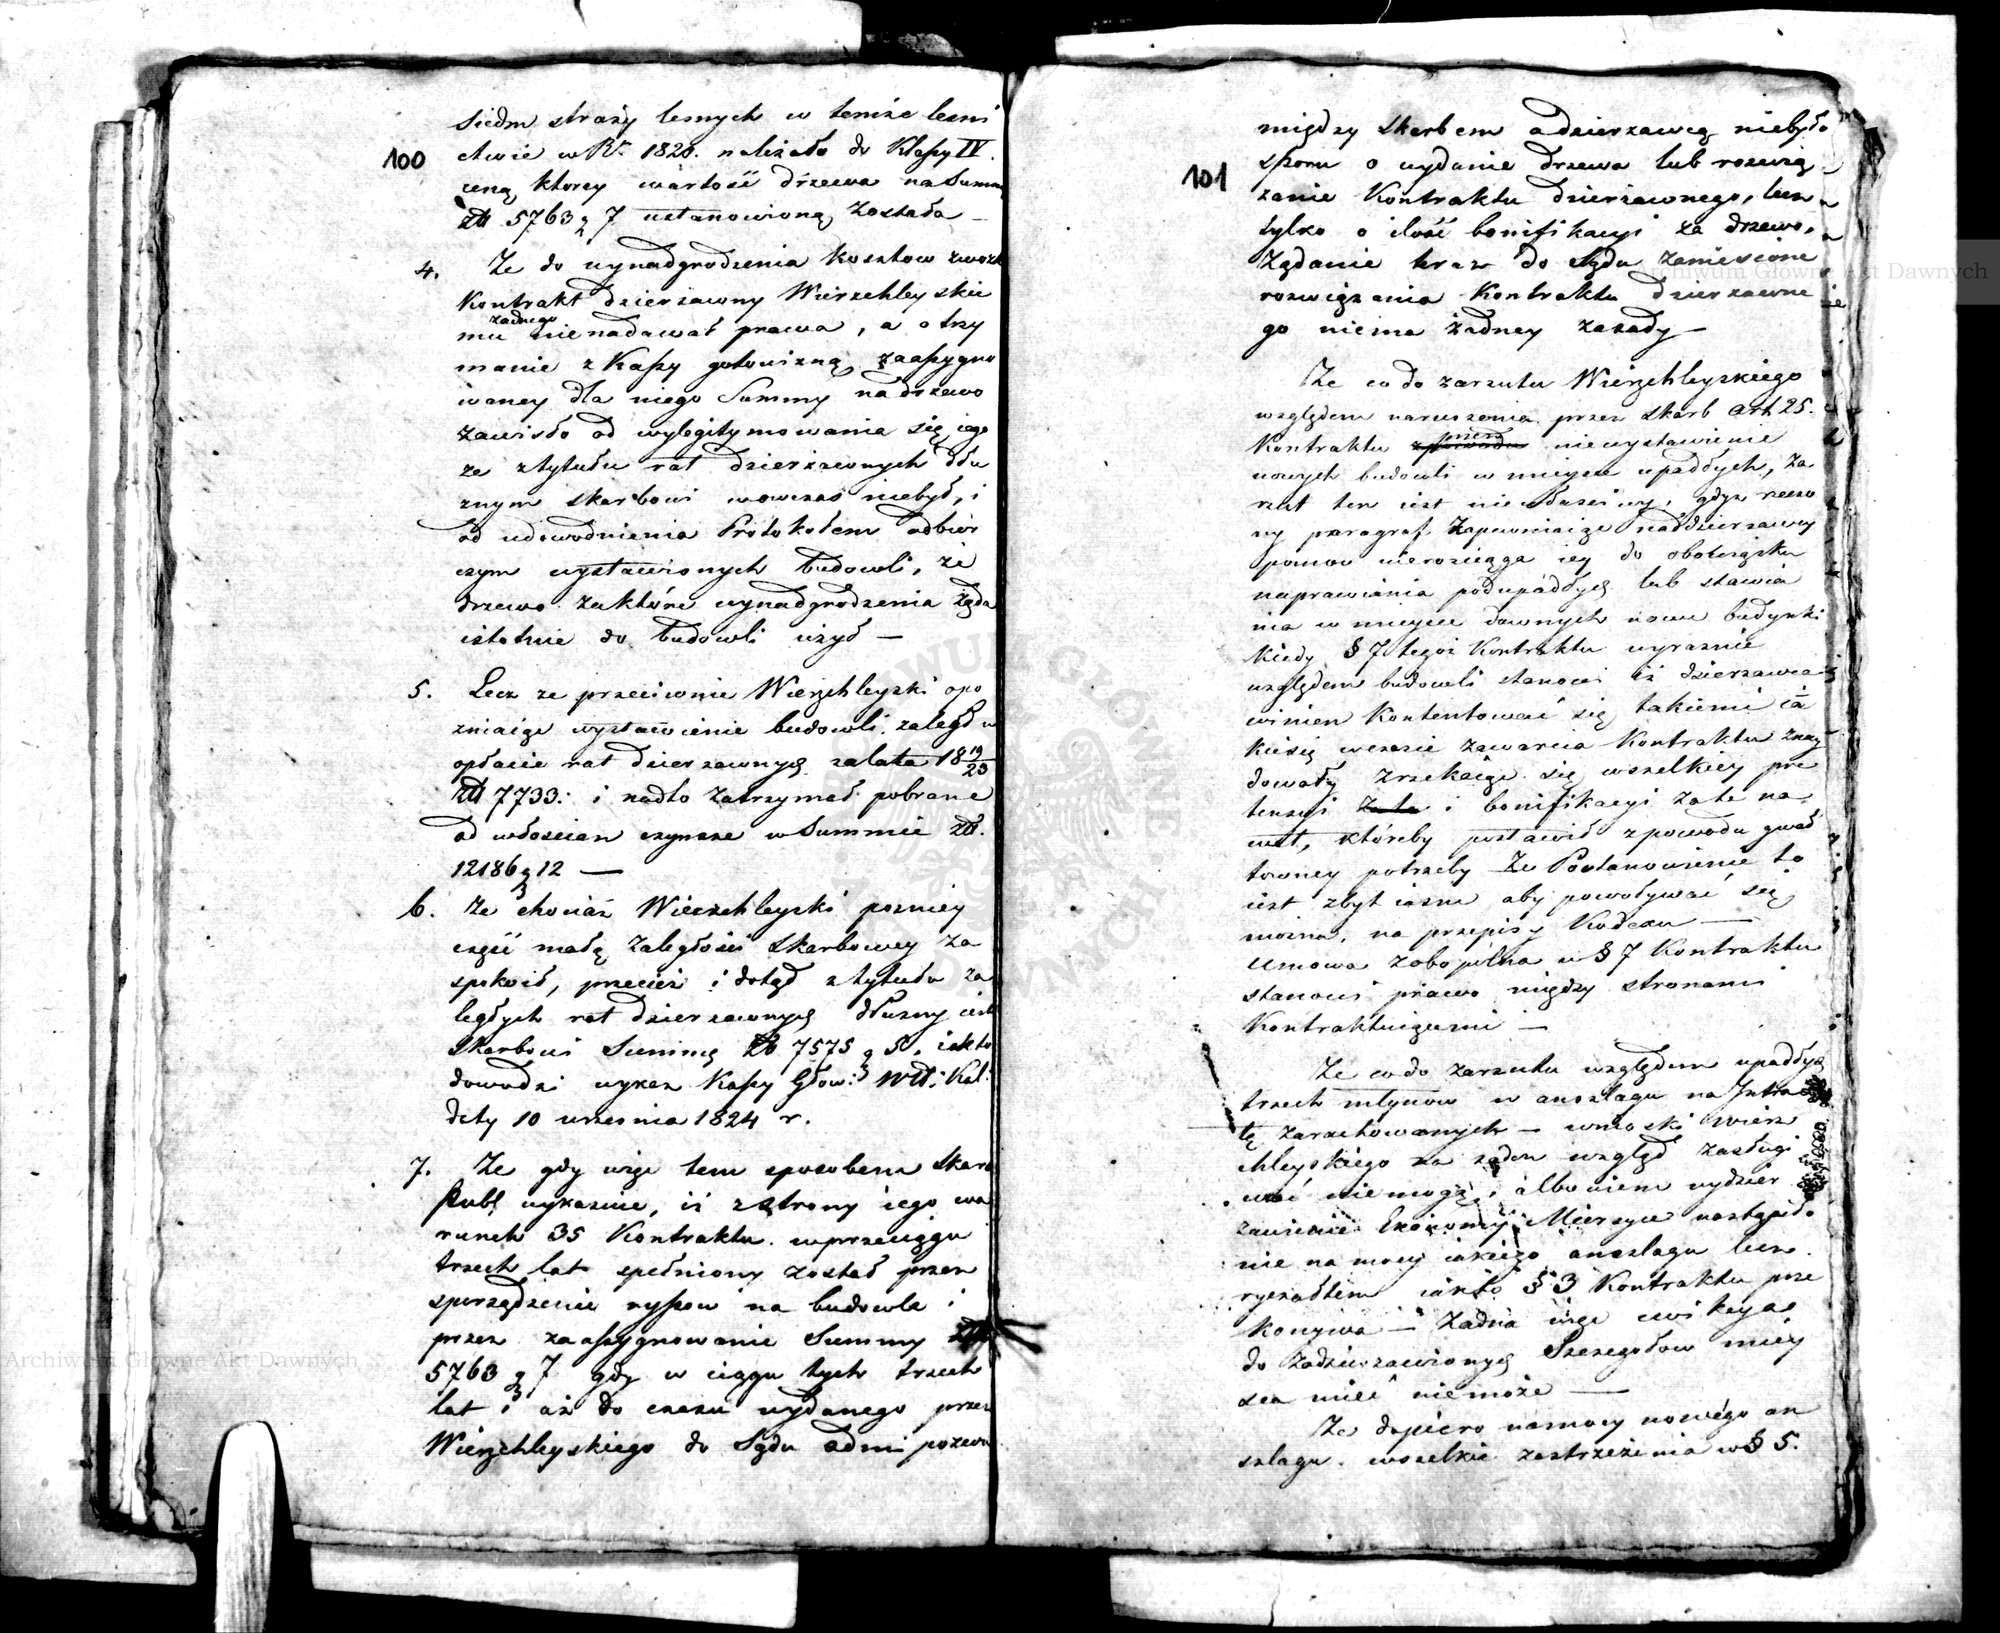 100
siedm straży lesnych w temże lesni
ctwie w Rr. 1820. należało do Klassy IV.
ceną ktorey wartość drzewa na Summę
Zł 5763 g 7 ustanowioną została —
4. Ze do wynadgrodzenia kosztow zwozki
Kontrakt dzierzawny Wierzchleyskie
mu żadnego nienadawał prawa, a otrzy
manie z Kassy gotowizną zaassygno
waney dla niego Summy na drzewo
zawisło od wylegitymowania się iego
ze z tytułu rat dzierżawnych dłu
żnym skarbowi wowczas niebył, i
od udowodnienia Protokołem odbior
czym wystawionych budowli, że
drzewo za które wynadgrodzenia żąda
istotnie do budowli użył —
5. Lecz ze przeciwnie Wierzchleyski opo
zniaiąc wystawienie budowli, zaległ w
opłacie rat dzierzawnych za lata 18 19/23
Zł 7733. i nadto zatrzymał pobrane
od włościan czynsze w Summie Zł.
12186 g 12 —
6. Ze chociaż Wierzchleyski pozniey
część małą zaległości skarbowey za
spokoił, przecież i dotąd z tytułu za
ległych rat dzierzawnych dłużny iest
Skarbowi Summę Zł 7575 g 5, iakto
dowodzi wykaz Kassy Głow: Wdt: Kal:
daty 10 września 1824 r.
7. Ze gdy więc tem sposobem Skarb
Publ wykazuie, iż z strony iego wa
runek 35 Kontraktu w przeciągu
trzech lat spełniony został przez
sporządzenie ryssow na budowle i
przez zaassygnowanie Summy Zł
5763 g 7 gdy w ciągu tych trzech
lat i aż do czasu wydanego przez
Wierzchleyskiego do Sądu admi pozewu
101
między skarbem a dzierzawcą niebyło
sporu o wydanie drzewa lub rozwią
zanie Kontraktu dzierżawnego, lecz
tylko o ilość bonifikacyi za drzewo,
Żądanie teraz do Sądu zaniesione
rozwiązania Kontraktu dzierzawne
go niema żadney zasady —
Ze co do zarzutu Wierzchleyskiego
względem naruszenia przez skarb art 25.
Kontraktu przez niewystawienie
nowych budowli w mieysce upadłych, za
rzut ten iest niewłaściwy, gdyz rzeczo
ny paragraf zapewniaiąc naddzierzawcy
pomoc nierozciąga iey do obowiązku
naprawiania podupadłych lub stawia
nia w mieysce dawnych nowe budynki
kiedy § 7 tegoż Kontraktu wyraznie
względem budowli stanowi iż dzierzawca
winien kontentować się takiemi ia
kie się w czasie zawarcia Kontraktu znay
dowały zrzekaiąc się wszelkiey pre
tensyi i bonifikacyi za te na
wet, któreby postawił z powodu gwał
towney potrzeby Ze Postanowienie to
iest zbyt iasne aby powoływać się
można, na przepisy Kodexu —
Umowa zobopólna w § 7 Kontraktu
stanowi prawo między stronami
Kontraktuiącemi —
Ze co do zarzutu względem upadłych
trzech młynow w anszlagu na Intra
tę zarachowanych — wnioski Wierz
chleyskiego na żaden wzgląd zasługi
wać niemogą, albowiem wydzier
zawienie Ekonomij Mierzyce nastąpiło
nie na mocy iakiego anszlagu lecz
ryczałtem iakto § 3 Kontraktu prze
konywa — żadna więc ewikcya
do zadzierzawionych Szczegołow miey
sca mieć niemoże —
Ze dopiero na mocy nowego an
szlagu wszelkie zastrzeżenia w § 5.